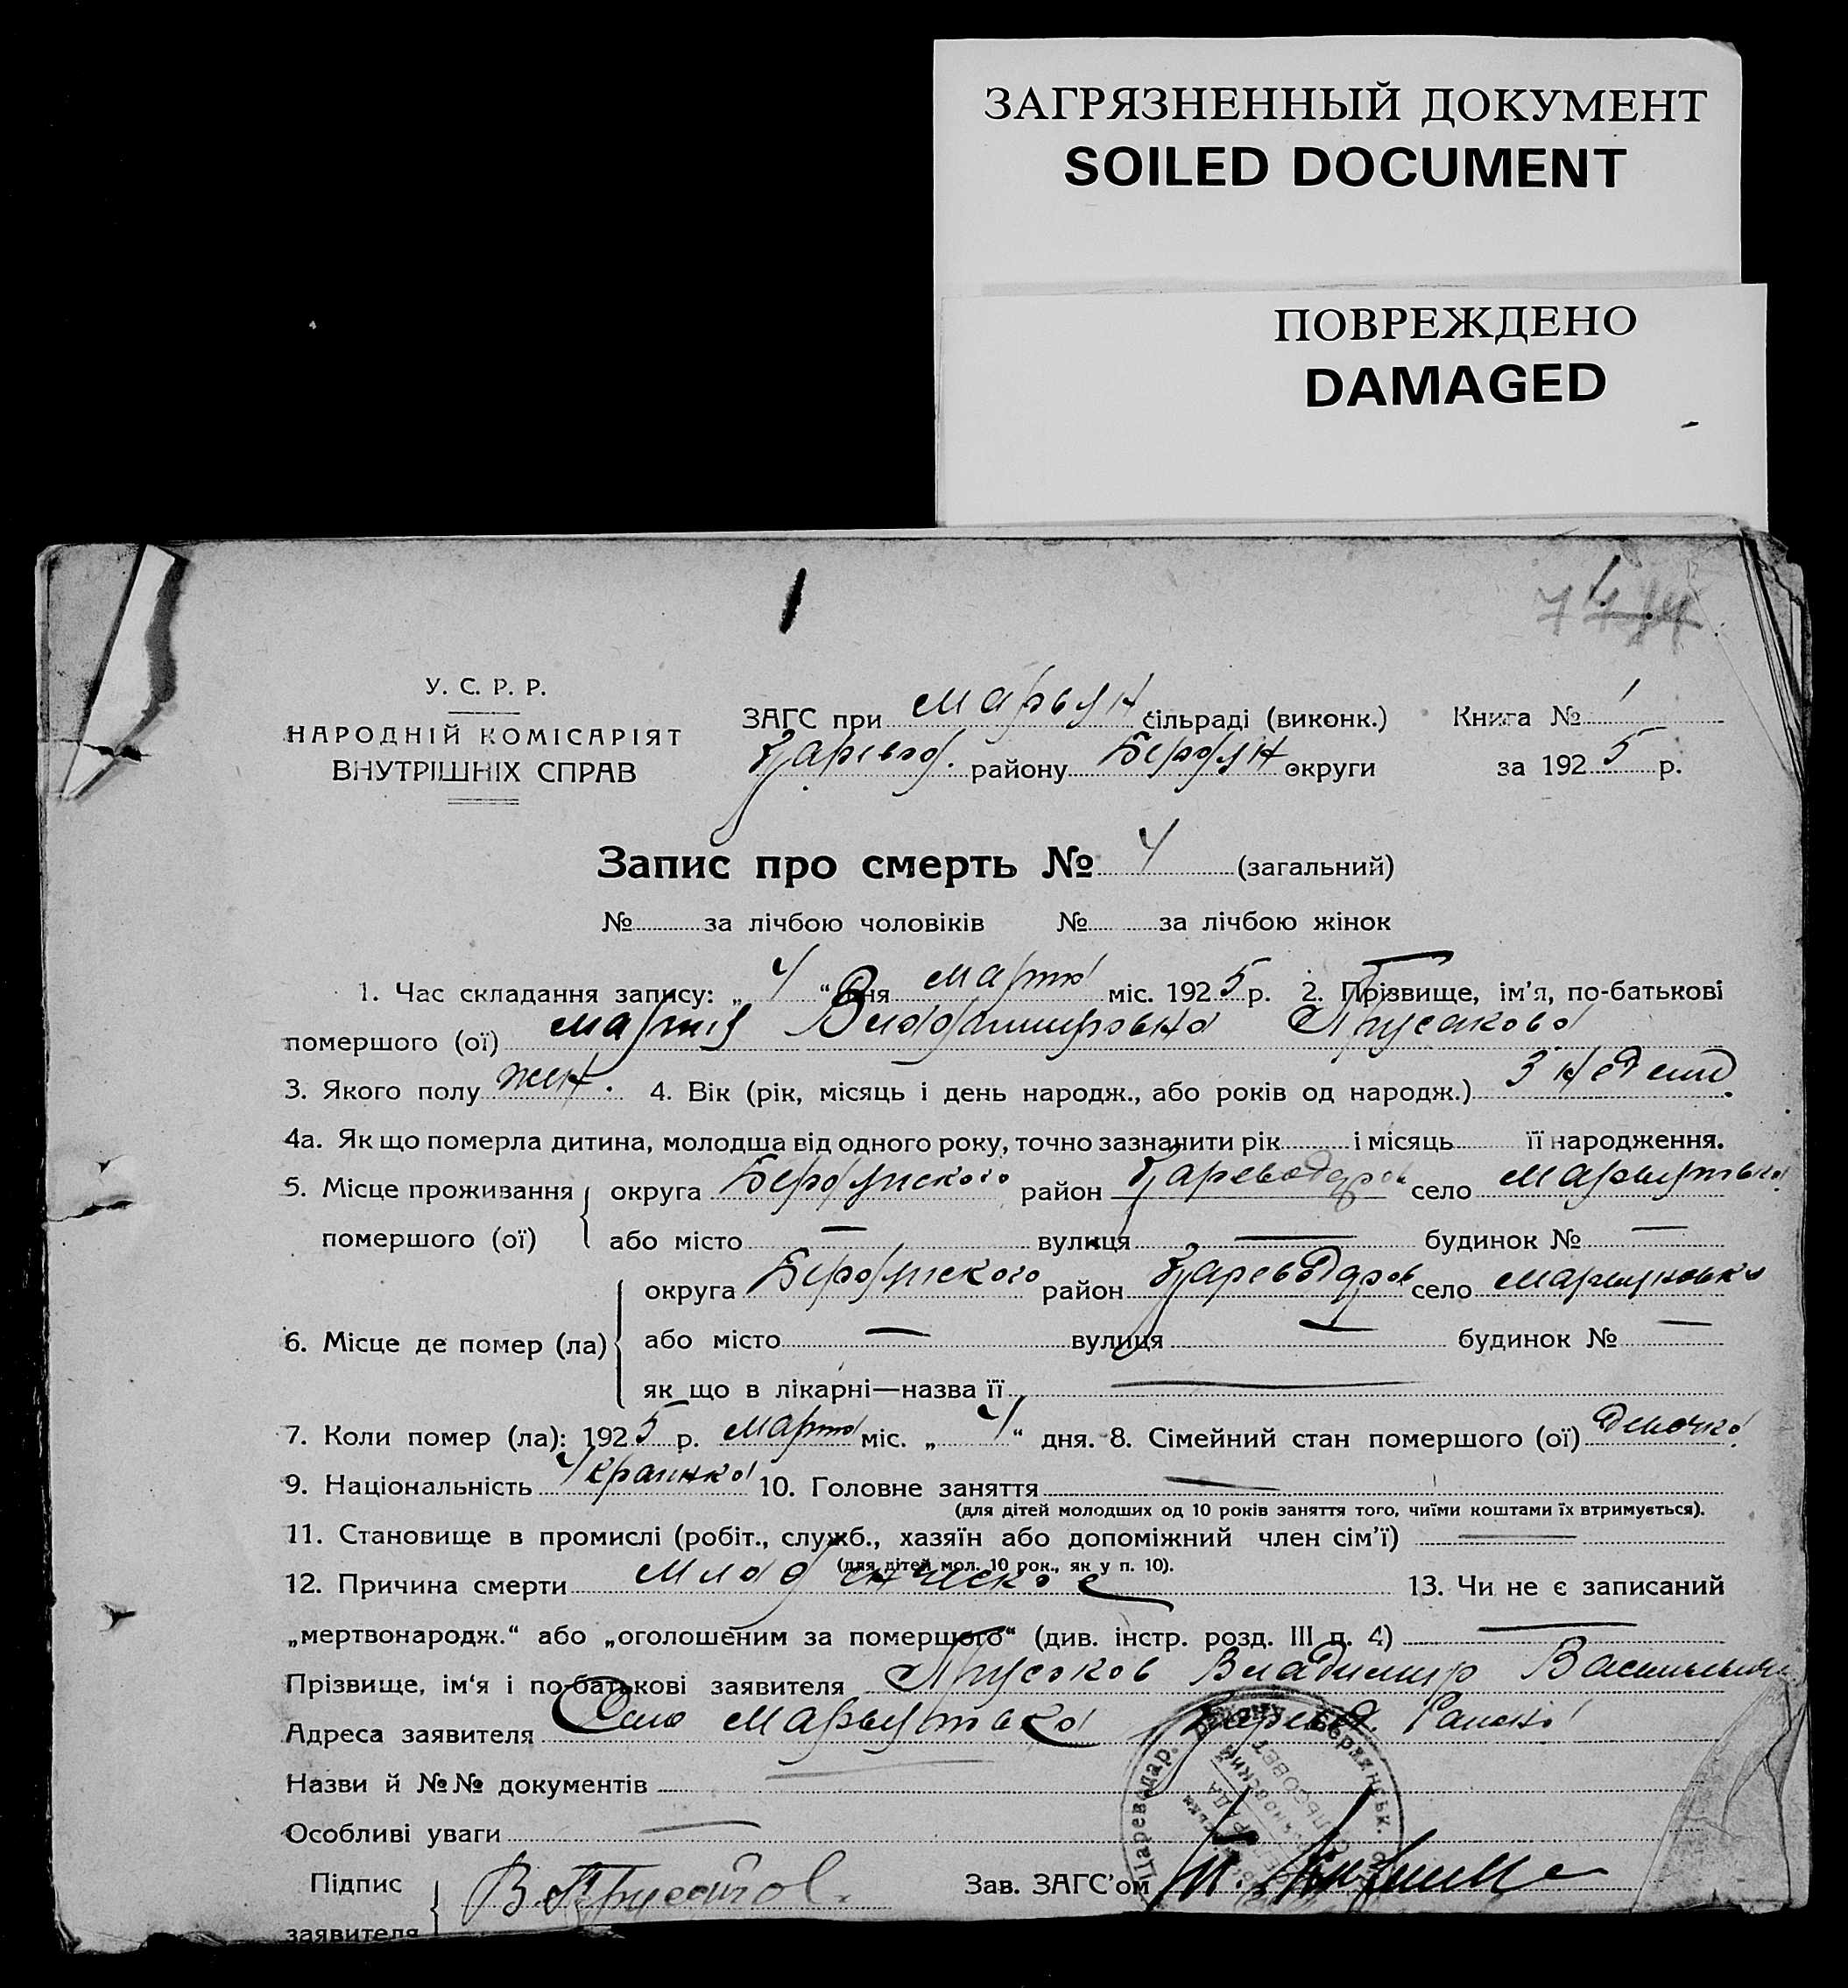 ЗАГРЯЗНЕННЫЙ ДОКУМЕНТ
SOILED DOCUMENT
ПОВРЕЖДЕНО
DAMAGED
У. С. Р. Р.
НАРОДНІЙ КОМІСАРІЯТ
ВНУТРІШНІХ СПРАВ
ЗАГС при Марьян сільраді (виконк.) Книга № 1
Царевод. району Бердян округи за 1925 р.
Запис про смерть № 4 (загальний)
№ за лічбою чоловіків № за лічбою жінок
1. Час складання запису: „ 4 “ дня марта міс. 1925 р. 2. Прізвище, ім'я, по-батькові
помершого (ої) Владимировна
3. Якого полу жен. 4. Вік (рік, місяць і день народж., або років од народж.) 3 недели
4а. Як що померла дитина, молодша від одного року, точно зазначити рік і місяць її народження.
5. Місце проживання округа Бердянского район Цареводаров село
помершого (ої) або місто — вулиця — будинок № —
округа Бердянского район Цареводаров село
6. Місце де помер (ла) або місто — вулиця — будинок № —
як що в лікарні—назва її —
7. Коли помер (ла): 1925 р. марта міс. „ 4 “ дня. 8. Сімейний стан помершого (ої)
9. Національність Украинка 10. Головне заняття —
(для дітей молодших од 10 років заняття того, чиїми коштами їх втримується).
11. Становище в промислі (робіт., служб., хазяїн або допоміжний член сім'ї) —
(для дітей мол. 10 рок., як у п. 10).
12. Причина смерти Младенческое 13. Чи не є записаний
„мертвонародж.“ або „оголошеним за померщого“ (див. інстр. розд. III п. 4) —
Прізвище, ім'я і по-батькові заявителя Владимир Васильевич
Адреса заявителя Село
Назви й №№ документів —
Особливі уваги —
Підпис
заявителя
Зав. ЗАГС'ом